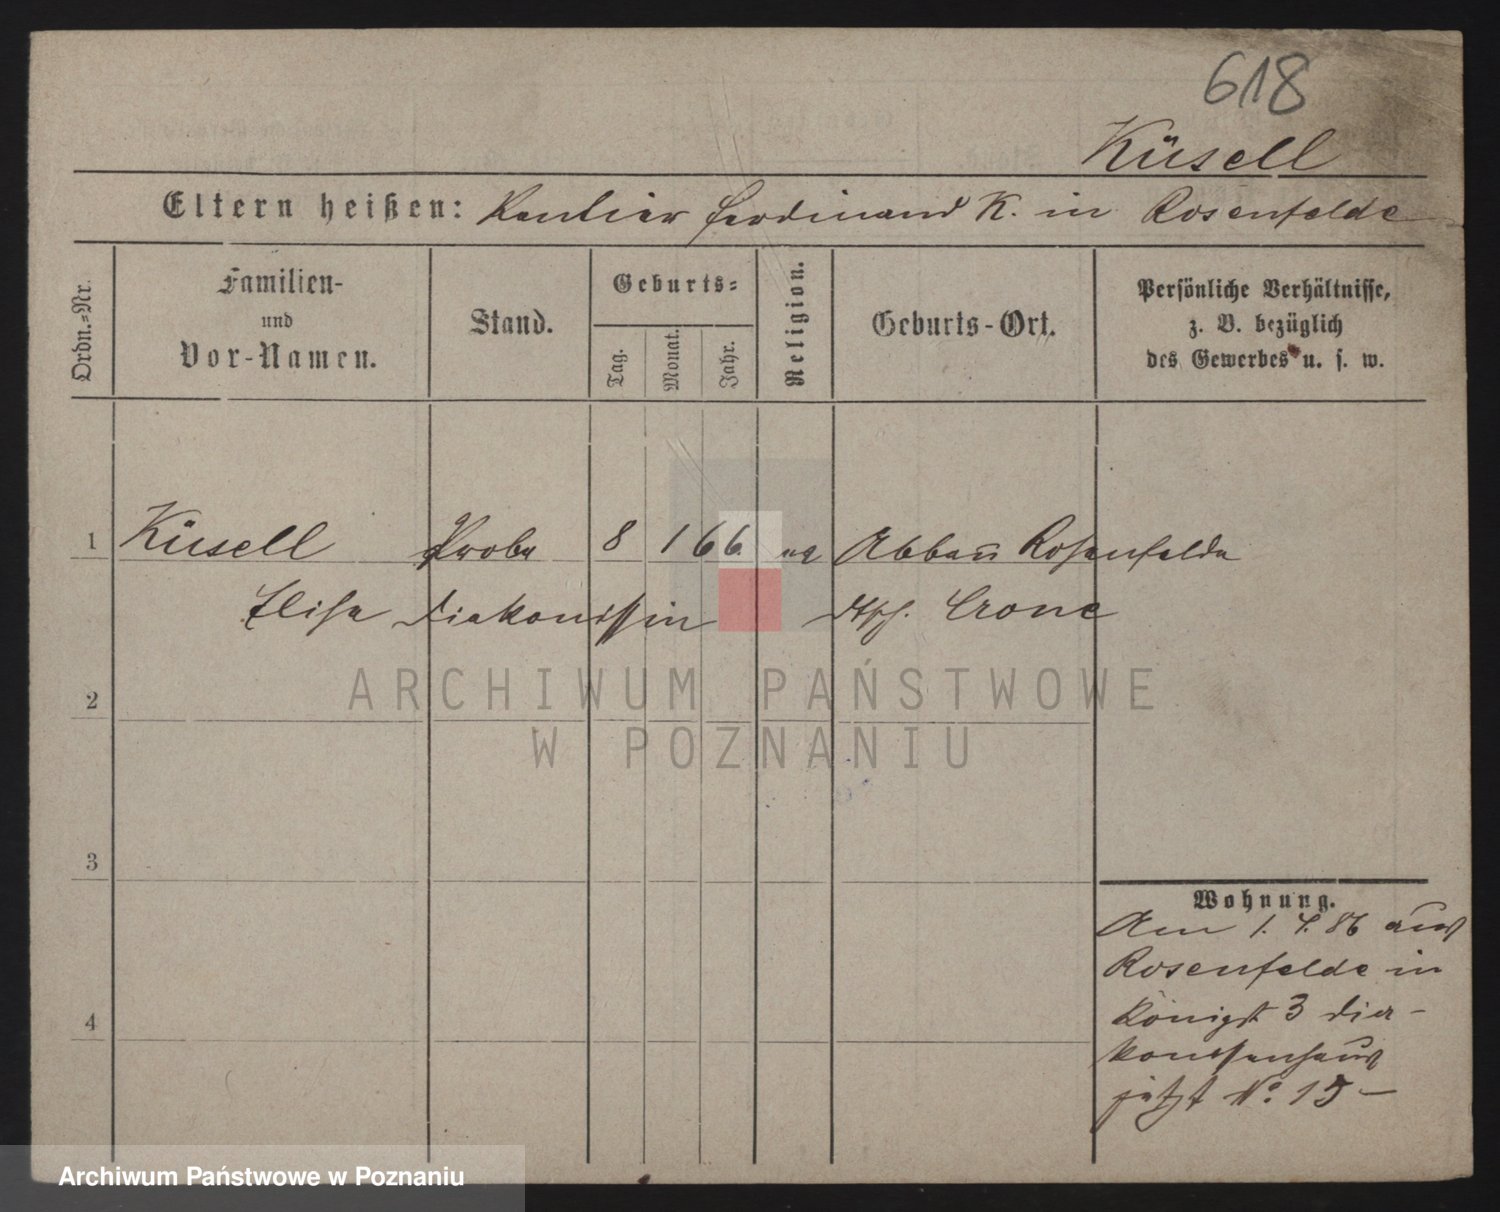 618
Küsell
Eltern heißen: Rentier Ferdinand K. in Rosenfelde
Ordn.-Nr.
Familien-
und
Vor-Namen.
Stand.
Geburts-
Tag.
Monat.
Jahr.
Religion.
Geburts-Ort.
Persönliche Verhältnisse,
z. B. bezüglich
des Gewerbes u. s. w.
1 Küsell Probe 8 1 66. Abbau Rosenfelde
Elise Diakonissin Crone
2
3
4
Wohnung.
Am 1. 4. 86 aus
Rosenfelde in
Königst 3 Dia-
konissenhaus
jetzt No. 15 –
ARCHIWUM PAŃSTWOWE
W POZNANIU
Archiwum Państwowe w Poznaniu